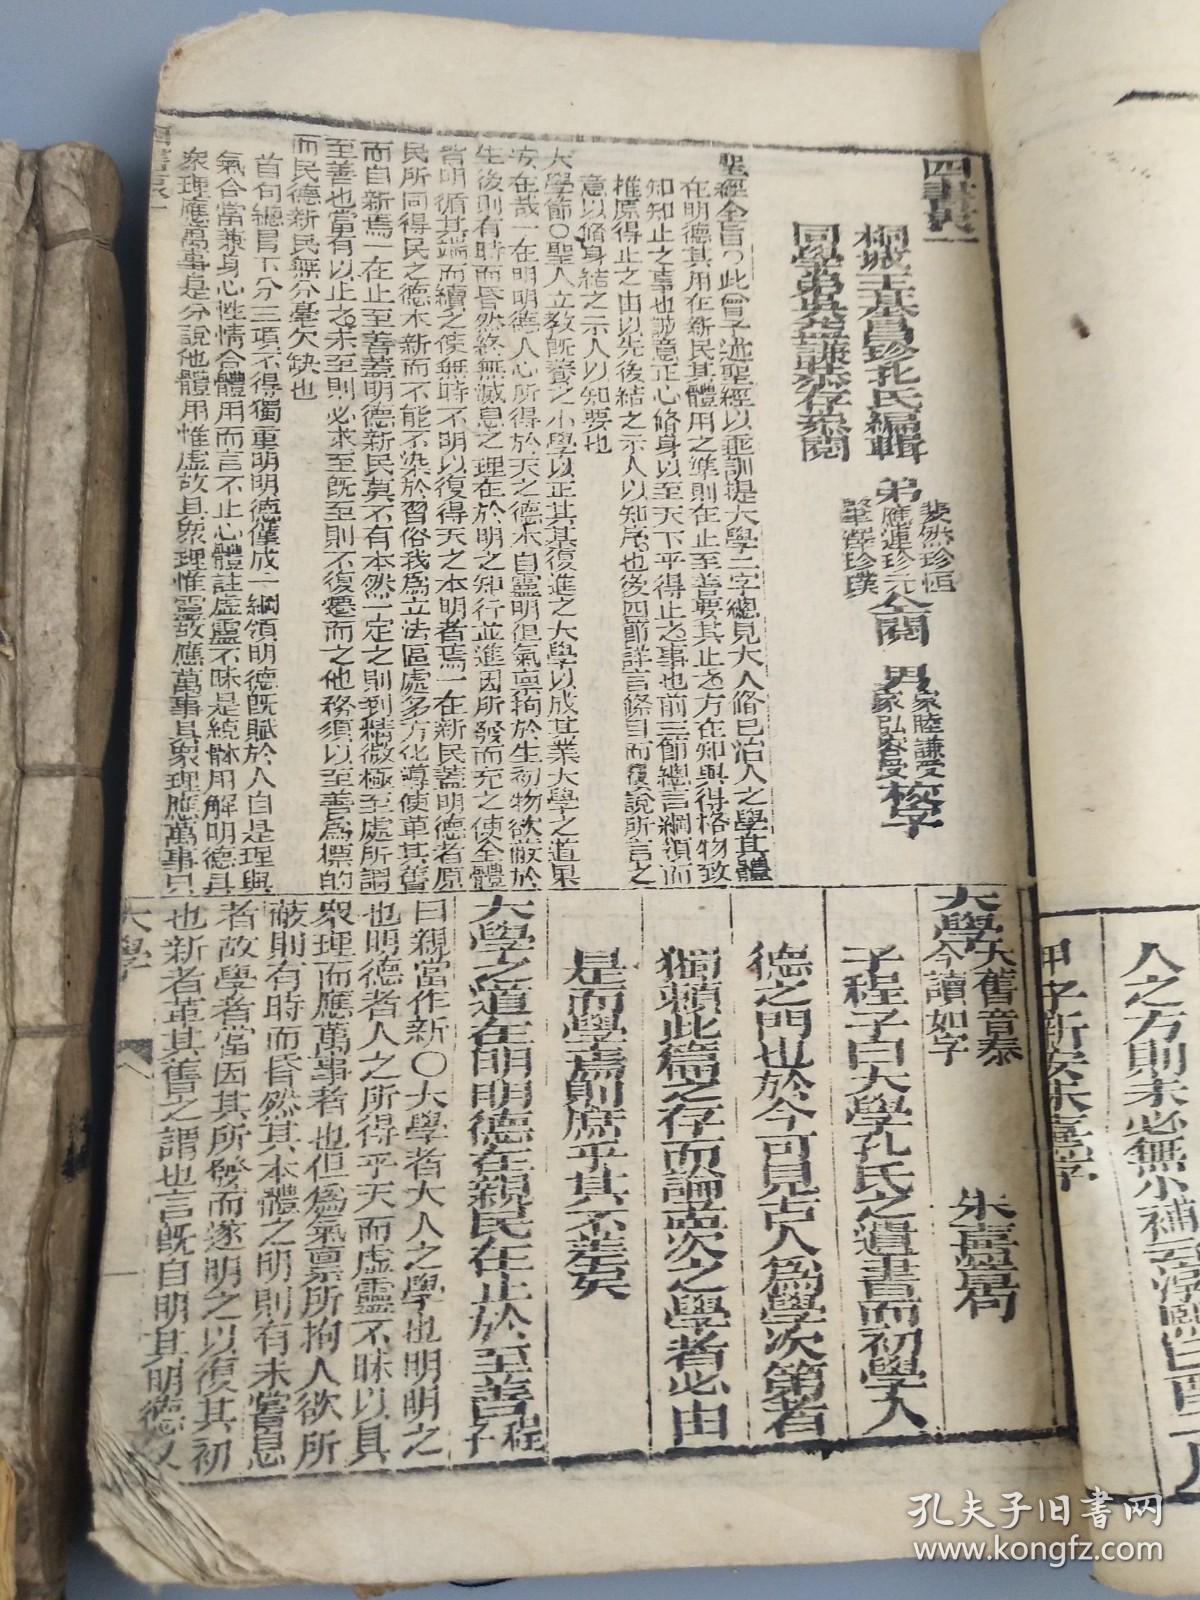 人之方則未必無小補云淳熙己酉二月
甲子新安朱熹序
桐城王基昌珍孔氏編輯
弟
裴然珍恒
應運珍元
仝閱
男
家睦謙受
家弘容受
校字
聖經全旨○此曾子述聖經以垂訓提大學二字總見大人脩己治人之學其體
在明德其用在新民其體用之準則在止至善要其止之方在知與得格物致
知知止之事也誠意正心脩身以至天下平得止之事也前三節總言綱領而
推原得止之由以先後結之示人以知序也後四節詳言條目而覆說所言之
意以脩身結之示人以知要也
大學節○聖人立教既養之小學以正其基復進之大學以成其業大學之道果
安在哉一在明明德人心所得於天之德本自靈明但氣稟拘於生初物欲蔽於
生後則有時而昏然終無滅息之理在於明之知行並進因所發而充之使全體
皆明循其端而續之使無時不明以復得天之本明者焉一在新民蓋明德者原
民所同得民之德本新而不能不染於習俗我爲立法區處多方化導使革其舊
而自新焉一在止至善蓋明德新民莫不有本然一定之則到精微極至處所謂
至善也當有以止之未至則必求至既至則不復遷而之他務須以至善爲標的
而民德新民無分毫欠缺也
首句總冒下分三項不得獨重明明德僅成一綱領明德既賦於人自是理與
氣合當兼身心性情合體用而言不止心體註虛靈不昧是統體用解明德具
衆理應萬事是分說他體用惟虛故具衆理惟靈故應萬事具衆理應萬事只
大學
大舊音泰
今讀如字
朱熹章句
子程子曰大學孔氏之遺書而初學入
德之門也於今可見古人爲學次第者
獨賴此篇之存而論孟次之學者必由
是而學焉則庶乎其不差矣
大學之道在明明德在親民在止於至善程
子
曰親當作新○大學者大人之學也明明之
也明德者人之所得乎天而虛靈不昧以具
衆理而應萬事者也但爲氣稟所拘人欲所
蔽則有時而昏然其本體之明則有未嘗息
者故學者當因其所發而遂明之以復其初
也新者革其舊之謂也言既自明其明德又
大學
孔夫子旧书网
www.kongfz.com